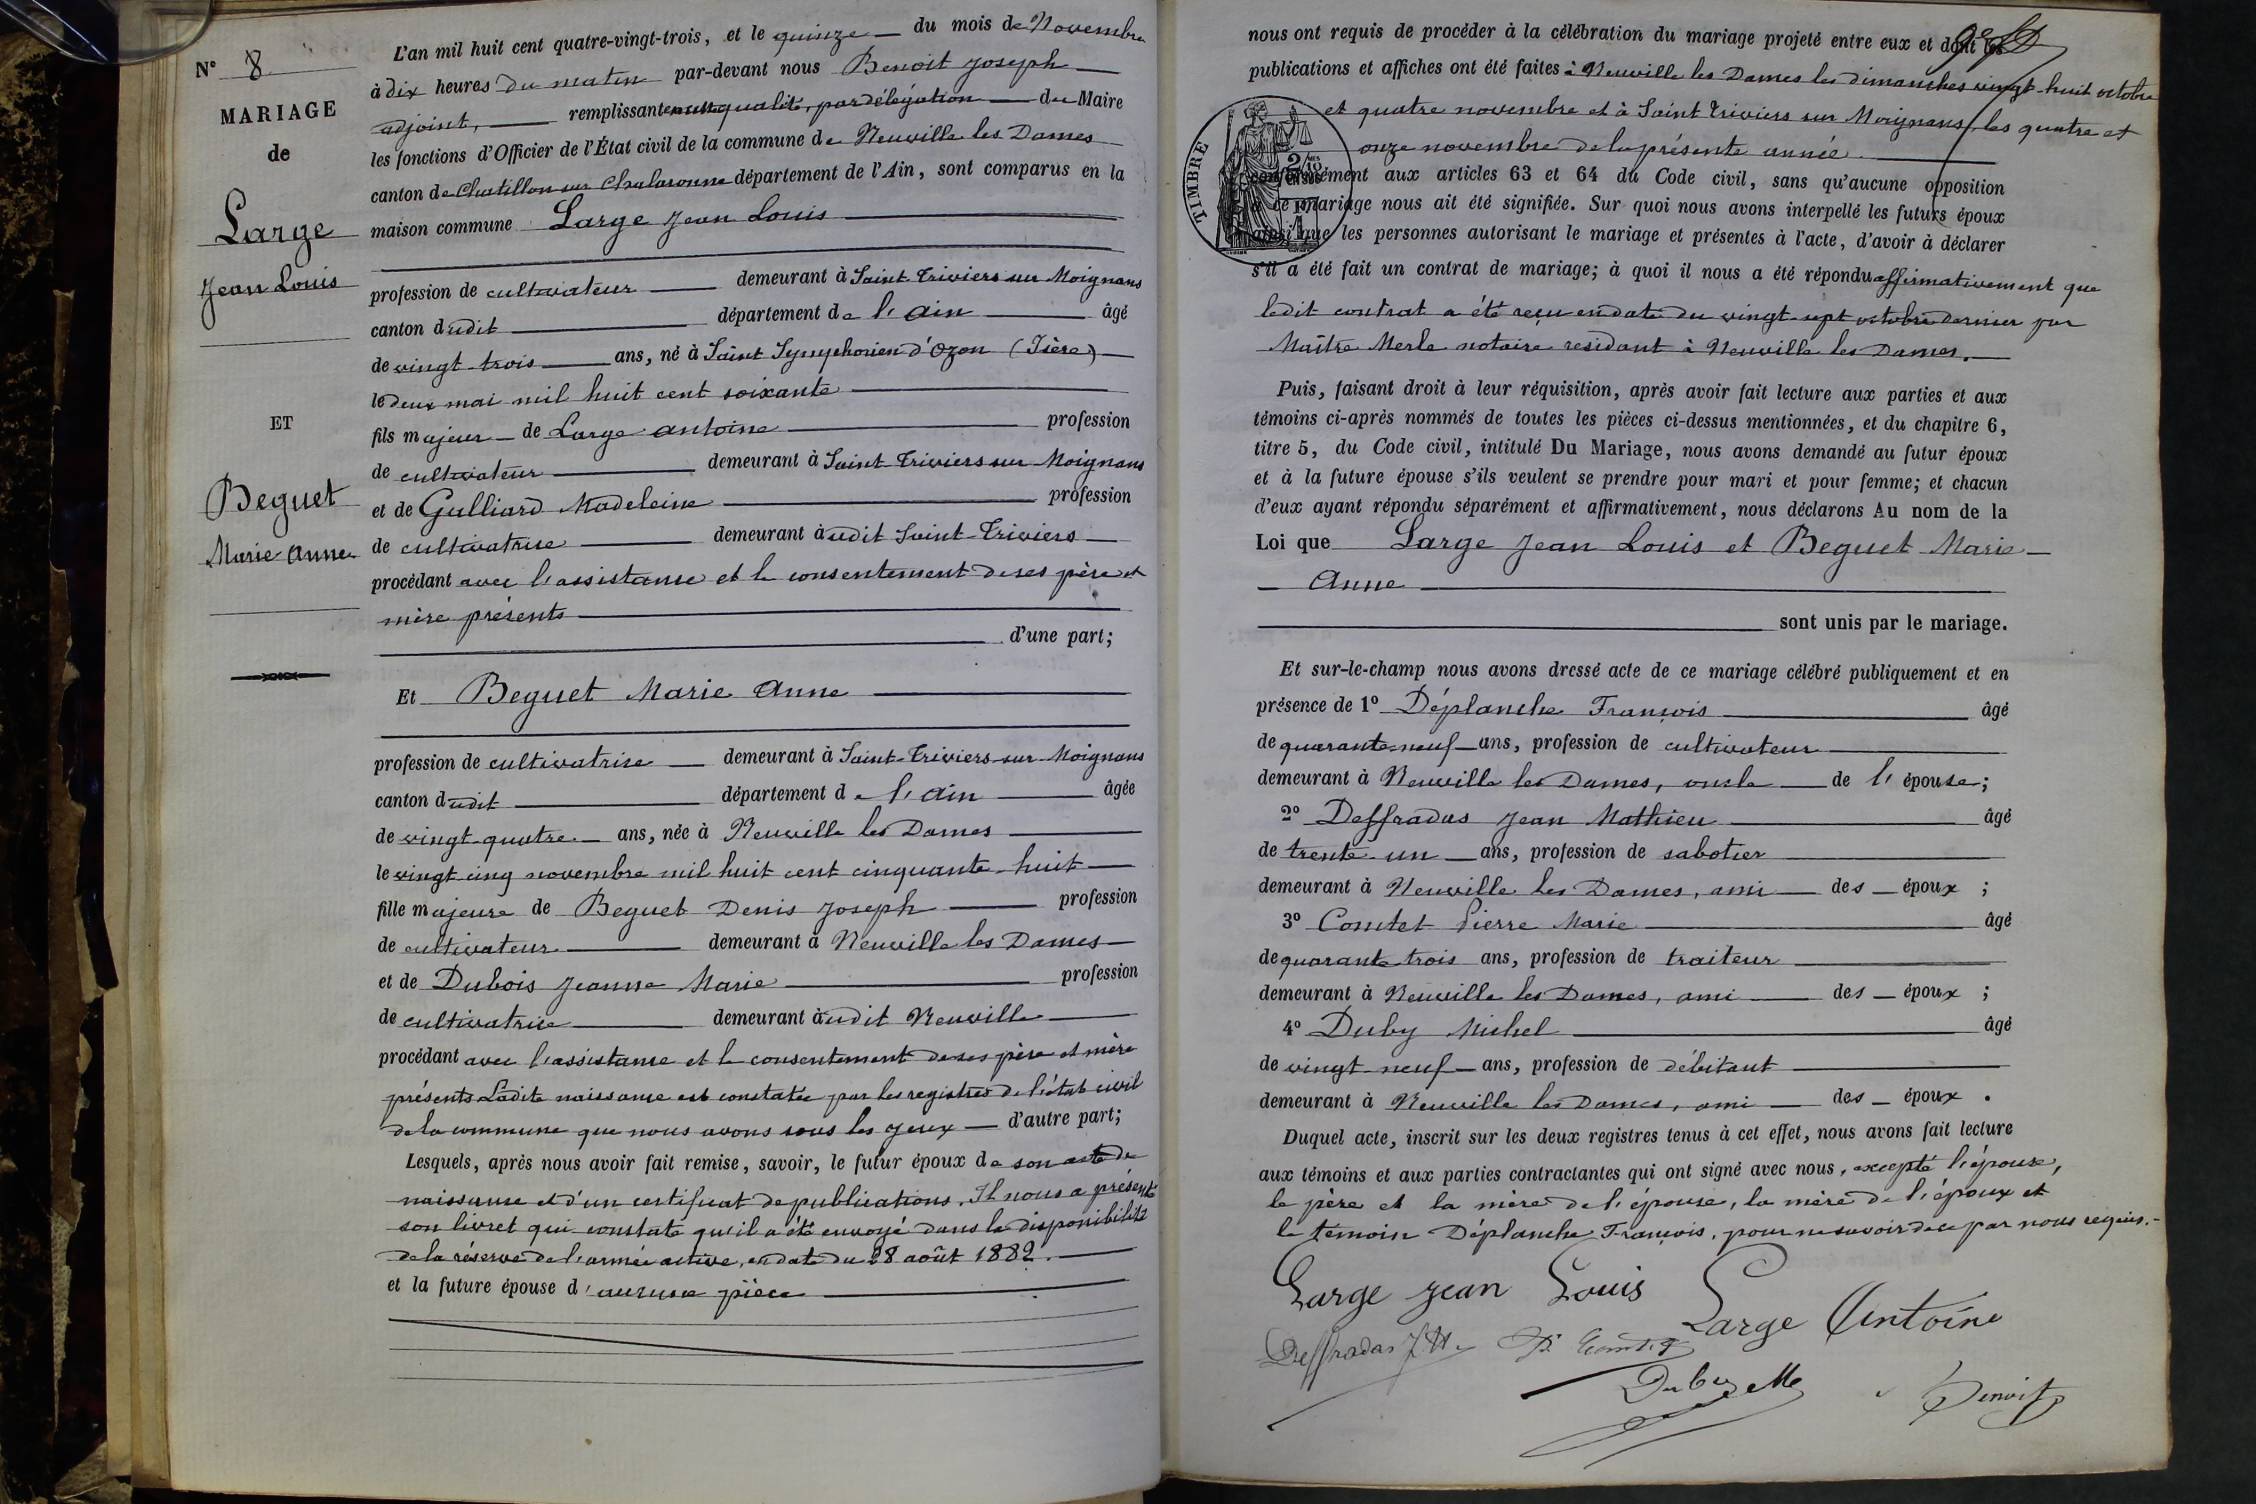 N° 8
MARIAGE
de
Large
Jean Louis
ET
Beguet
Marie Anne
L'an mil huit cent quatre-vingt-trois, et le quinze du mois de Novembre
à dix heures du matin par-devant nous Benoit Joseph
adjoint, remplissant en cette qualité, par délégation du Maire
les fonctions d'Officier de l'État civil de la commune de Neuville les Dames
canton de Chatillon sur Chalaronne département de l'Ain, sont comparus en la
maison commune Large Jean Louis
profession de cultivateur demeurant à Saint-Triviers sur Moignans
canton dudit département de l'Ain âgé
de vingt trois ans, né à Saint Symphorien d'Ozon (Isère)
le deux mai mil huit cent soixante
fils majeur de Large Antoine profession
de cultivateur demeurant à Saint-Triviers sur Moignans
et de Gulliard Madeleine profession
de cultivatrise demeurant àudit Saint-Triviers
procédant avec l'assistance et le consentement de ses père et
mère présents
d'une part;
Et Beguet Marie Anne
profession de cultivatrise demeurant à Saint-Triviers-sur-Moignans
canton dudit département de l'Ain âgée
de vingt-quatre ans, née à Neuville les Dames
le vingt cinq novembre mil huit cent cinquante-huit
fille majeure de Beguet Denis Joseph profession
de cultivateur demeurant à Neuville les Dames
et de Dubois Jeanne Marie profession
de cultivatrise demeurant àudit Neuville
procédant avec l'assistance et le consentement de ses père et mère
présents Ladite naissance est constatée par les registres de l'état civil
de la commune que nous avons sous les yeux d'autre part;
Lesquels, après nous avoir fait remise, savoir, le futur époux de son acte de
naissance et d'un certificat de publications. Il nous a présenté
son livret qui constate qu'il a été envoyé dans la disponibilité
de la réserve de l'armée active, en date du 28 août 1882.
et la future épouse d'aucune pièce
nous ont requis de procéder à la célébration du mariage projeté entre eux et dont les
publications et affiches ont été faites à Neuville les Dames les dimanches vingt-huit octobre
et quatre novembre et à Saint Triviers sur Moignans, les quatre et
onze novembre de la présente année
TIMBRE
conformément aux articles 63 et 64 du Code civil, sans qu'aucune opposition
à ce mariage nous ait été signifiée. Sur quoi nous avons interpellé les futurs époux
ainsi que les personnes autorisant le mariage et présentes à l'acte, d'avoir à déclarer
s'il a été fait un contrat de mariage; à quoi il nous a été répondu affirmativement que
ledit contrat a été reçu en date du vingt-sept octobre dernier par
Maître Merle notaire residant à Neuville les Dames.
Puis, faisant droit à leur réquisition, après avoir fait lecture aux parties et aux
témoins ci-après nommés de toutes les pièces ci-dessus mentionnées, et du chapitre 6,
titre 5, du Code civil, intitulé Du Mariage, nous avons demandé au futur époux
et à la future épouse s'ils veulent se prendre pour mari et pour femme; et chacun
d'eux ayant répondu séparément et affirmativement, nous déclarons Au nom de la
Loi que Large Jean Louis et Beguet Marie
Anne
sont unis par le mariage.
Et sur-le-champ nous avons dressé acte de ce mariage célébré publiquement et en
présence de 1° Déplanche François âgé
de quarante-neuf ans, profession de cultivateur
demeurant à Neuville les Dames, oncle de l'épouse;
2° Deffradas Jean Mathieu âgé
de trente-un ans, profession de sabotier
demeurant à Neuville les Dames, ami des époux;
3° Comtet Pierre Marie âgé
de quarante-trois ans, profession de traiteur
demeurant à Neuville les Dames, ami des époux;
4° Duby Michel âgé
de vingt-neuf ans, profession de débitant
demeurant à Neuville les Dames, ami des époux.
Duquel acte, inscrit sur les deux registres tenus à cet effet, nous avons fait lecture
aux témoins et aux parties contractantes qui ont signé avec nous, excepté l'épouse,
le père et la mère de l'épouse, la mère de l'époux et
le témoin Déplanche François, pour ne savoir de ce par nous requis.
Large Jean Louis Large Antoine
Deffradas J M
Duby M Benoit